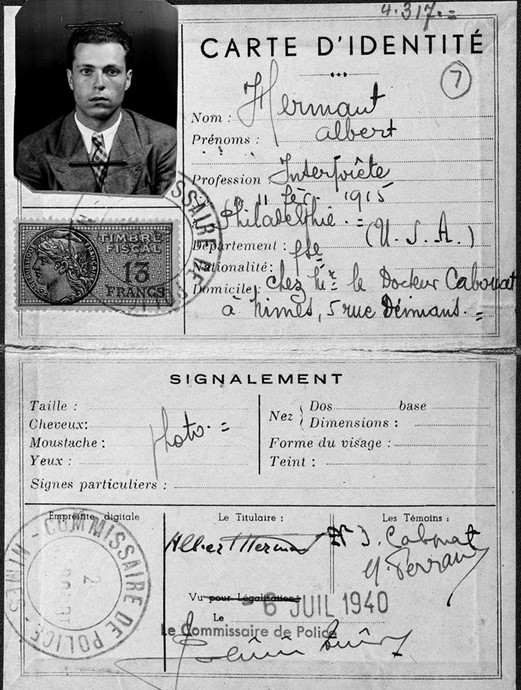 4.317.=
CARTE D'IDENTITÉ
7
Nom : Hermant
Prénoms : Albert
Profession Interprète
11 fév. 1915
Philadelphie.= (U.S.A.)
Département :
Nationalité : fse
Domicile : chez Mr. le Docteur Cabouat
à Nimes, 5 rue Démians.=
TIMBRE
FISCAL
13
FRANCS
SIGNALEMENT
Taille :
Cheveux :
Moustache :
Yeux :
photo.=
Signes particuliers :
Nez
Dos base
Dimensions :
Forme du visage :
Teint :
Empreinte digitale
COMMISSAIRE DE POLICE
NIMES
2
Le Titulaire :
Albert Hermant
Les Témoins :
J. Cabouat
Vu pour Légalisation
Le 6 JUIL 1940
Le Commissaire de Police